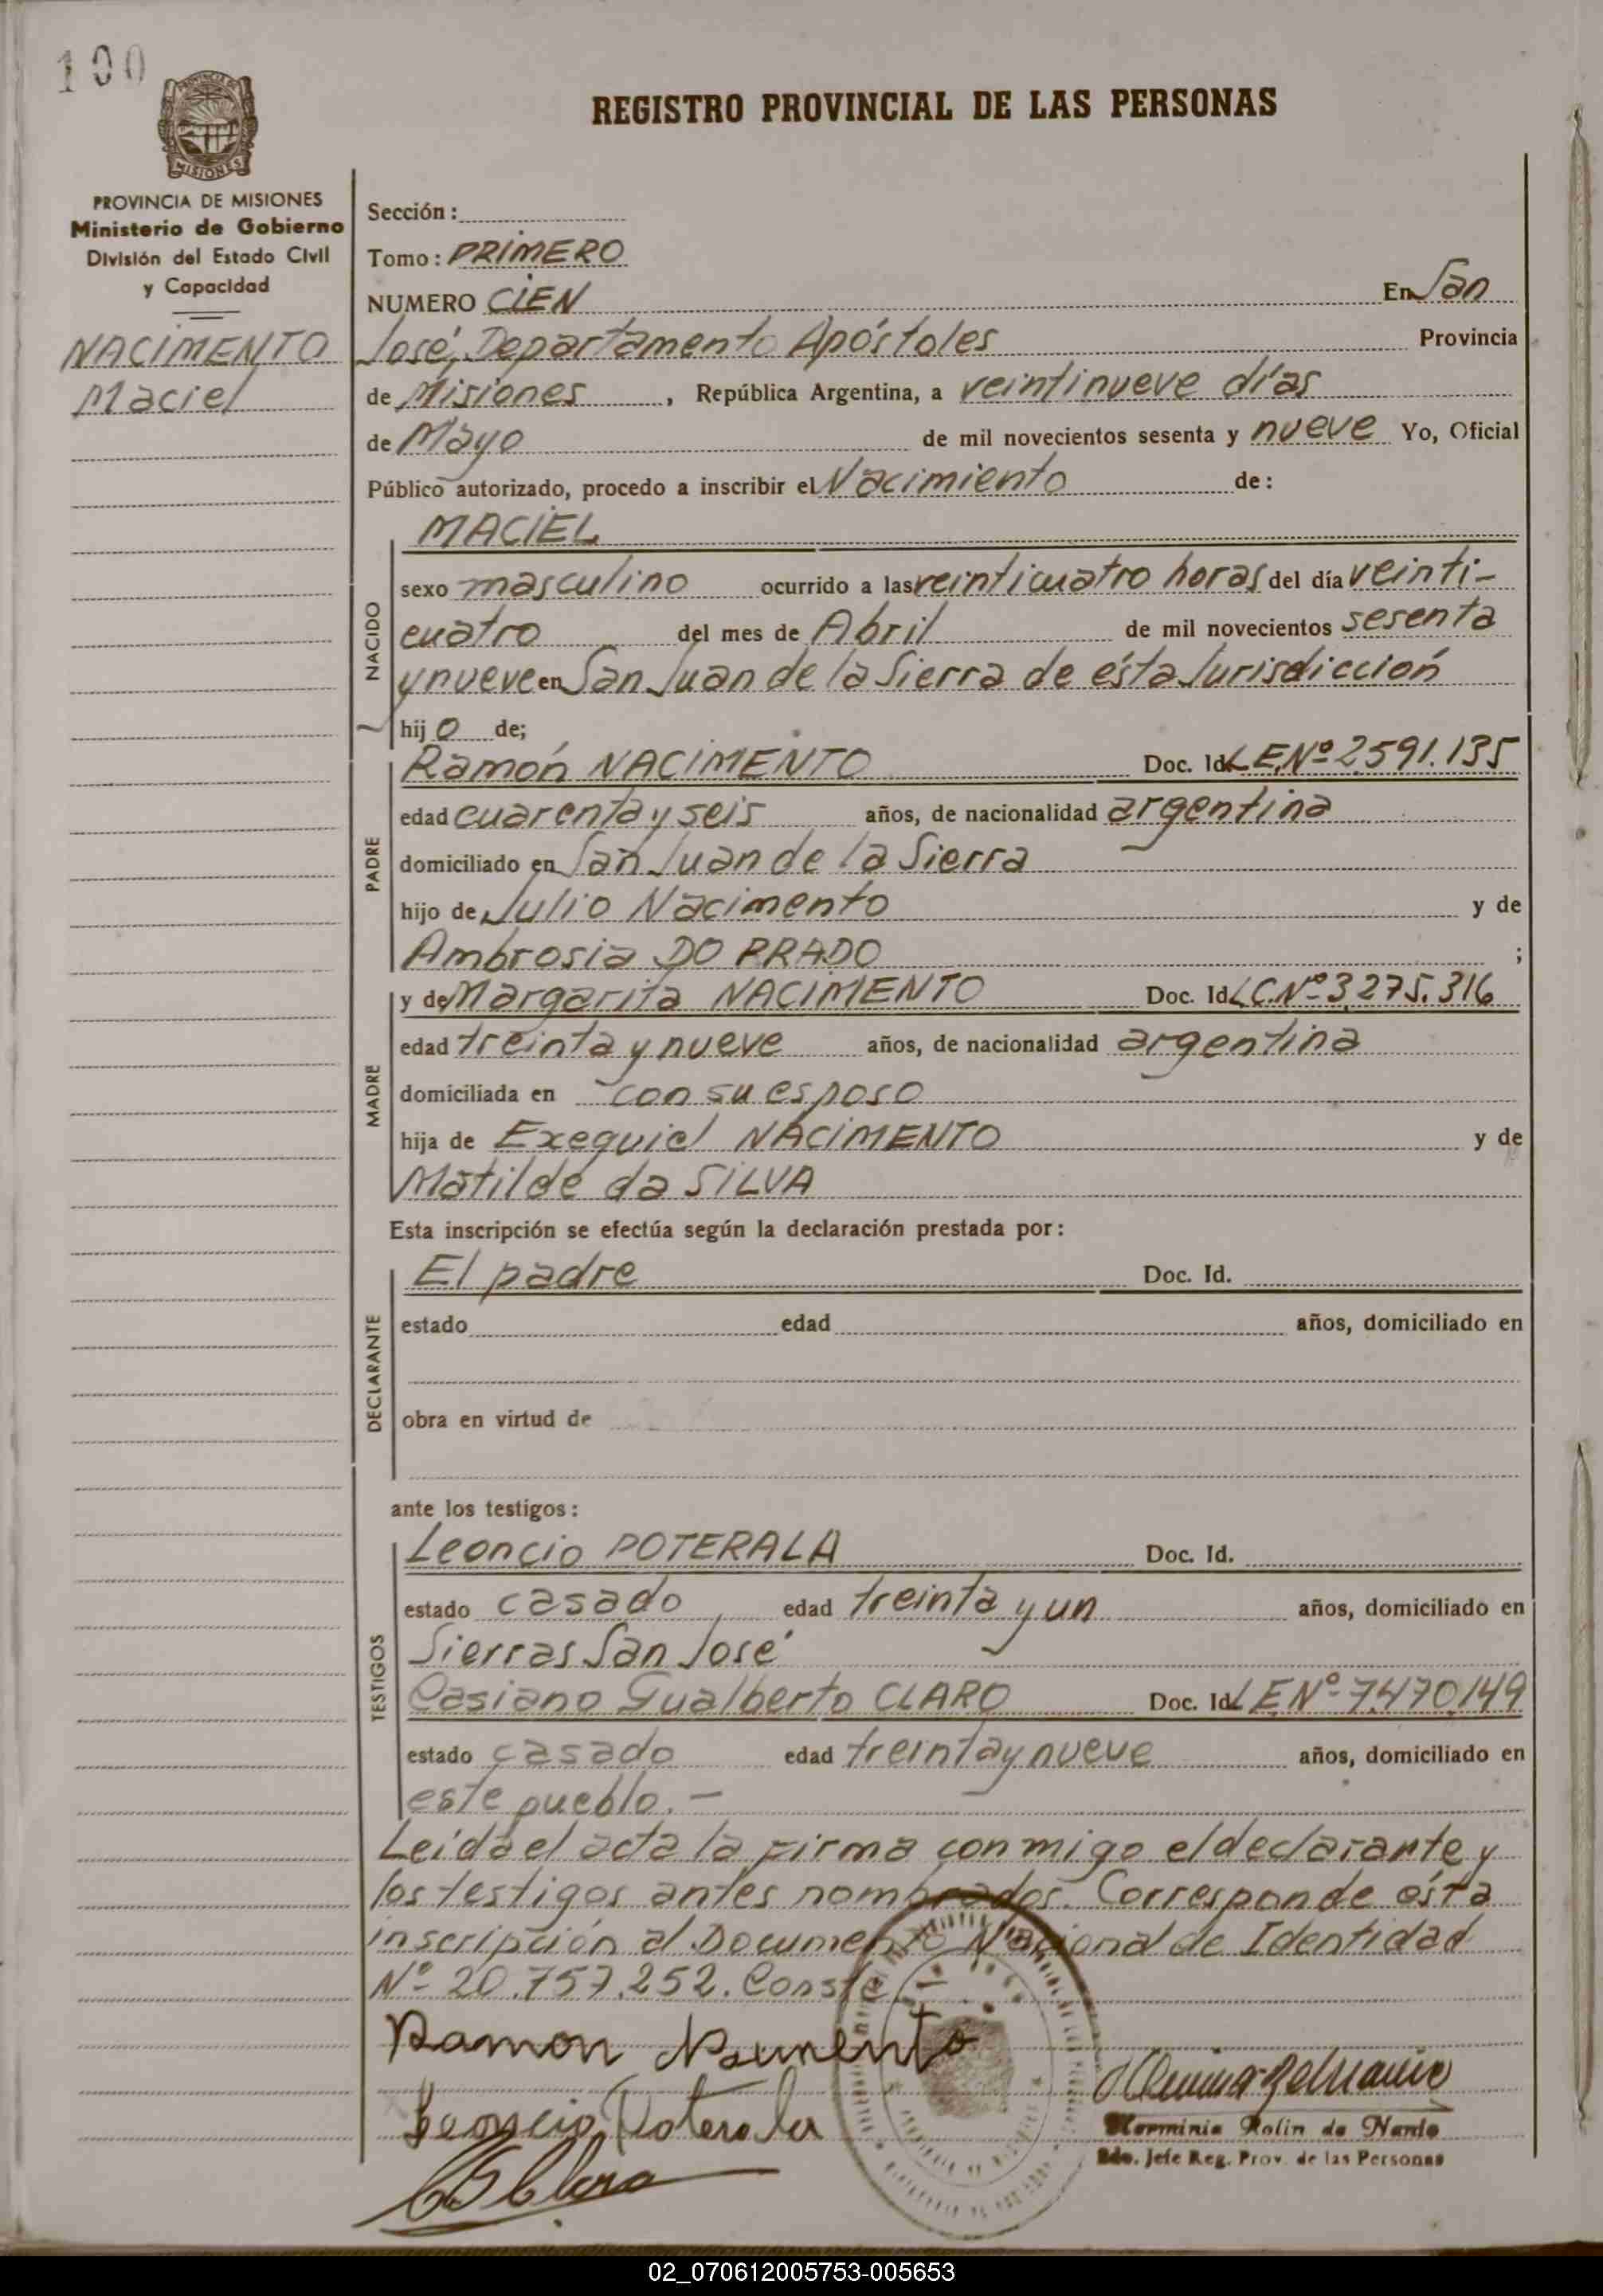 100
REGISTRO PROVINCIAL DE LAS PERSONAS
MISIONES
PROVINCIA DE MISIONES
Ministerio de Gobierno
División del Estado Civil
y Capacidad
NACIMENTO
Maciel
Sección:
Tomo: PRIMERO
NUMERO CIEN En San
José, Departamento Apóstoles Provincia
de Misiones, República Argentina, a veintinueve días
de Mayo de mil novecientos sesenta y nueve Yo, Oficial
Público autorizado, procedo a inscribir el Nacimiento de:
NACIDO
MACIEL
sexo masculino ocurrido a las veinticuatro horas del día veinti-
cuatro del mes de Abril de mil novecientos sesenta
y nueve en San Juan de la Sierra de ésta Jurisdicción
hijo de;
PADRE
Ramón NACIMENTO Doc. Id. L.E.Nº 2.591.135
edad cuarenta y seis años, de nacionalidad argentina
domiciliado en San Juan de la Sierra
hijo de Julio Nacimento y de
Ambrosia DO PRADO ;
MADRE
y de Margarita NACIMENTO Doc. Id. L.C.Nº 3.275.316
edad treinta y nueve años, de nacionalidad argentina
domiciliada en con su esposo
hija de Exequiel NACIMENTO y de
Matilde da SILVA
Esta inscripción se efectúa según la declaración prestada por:
DECLARANTE
El padre Doc. Id.
estado edad años, domiciliado en
obra en virtud de
ante los testigos:
TESTIGOS
Leoncio POTERALA Doc. Id.
estado casado edad treinta y un años, domiciliado en
Sierras San José
Casiano Gualberto CLARO Doc. Id. L.E.Nº 7.470.149
estado casado edad treinta y nueve años, domiciliado en
este pueblo.-
Leída el acta la firma conmigo el declarante y
los testigos antes nombrados. Corresponde ésta
inscripción al Documento Nacional de Identidad
Nº 20.757.252. Conste.-
Ramon Nacimento
Leoncio Poterala
Herminia Rolin de Nardo
2do. Jefe Reg. Prov. de las Personas
02_070612005753-005653